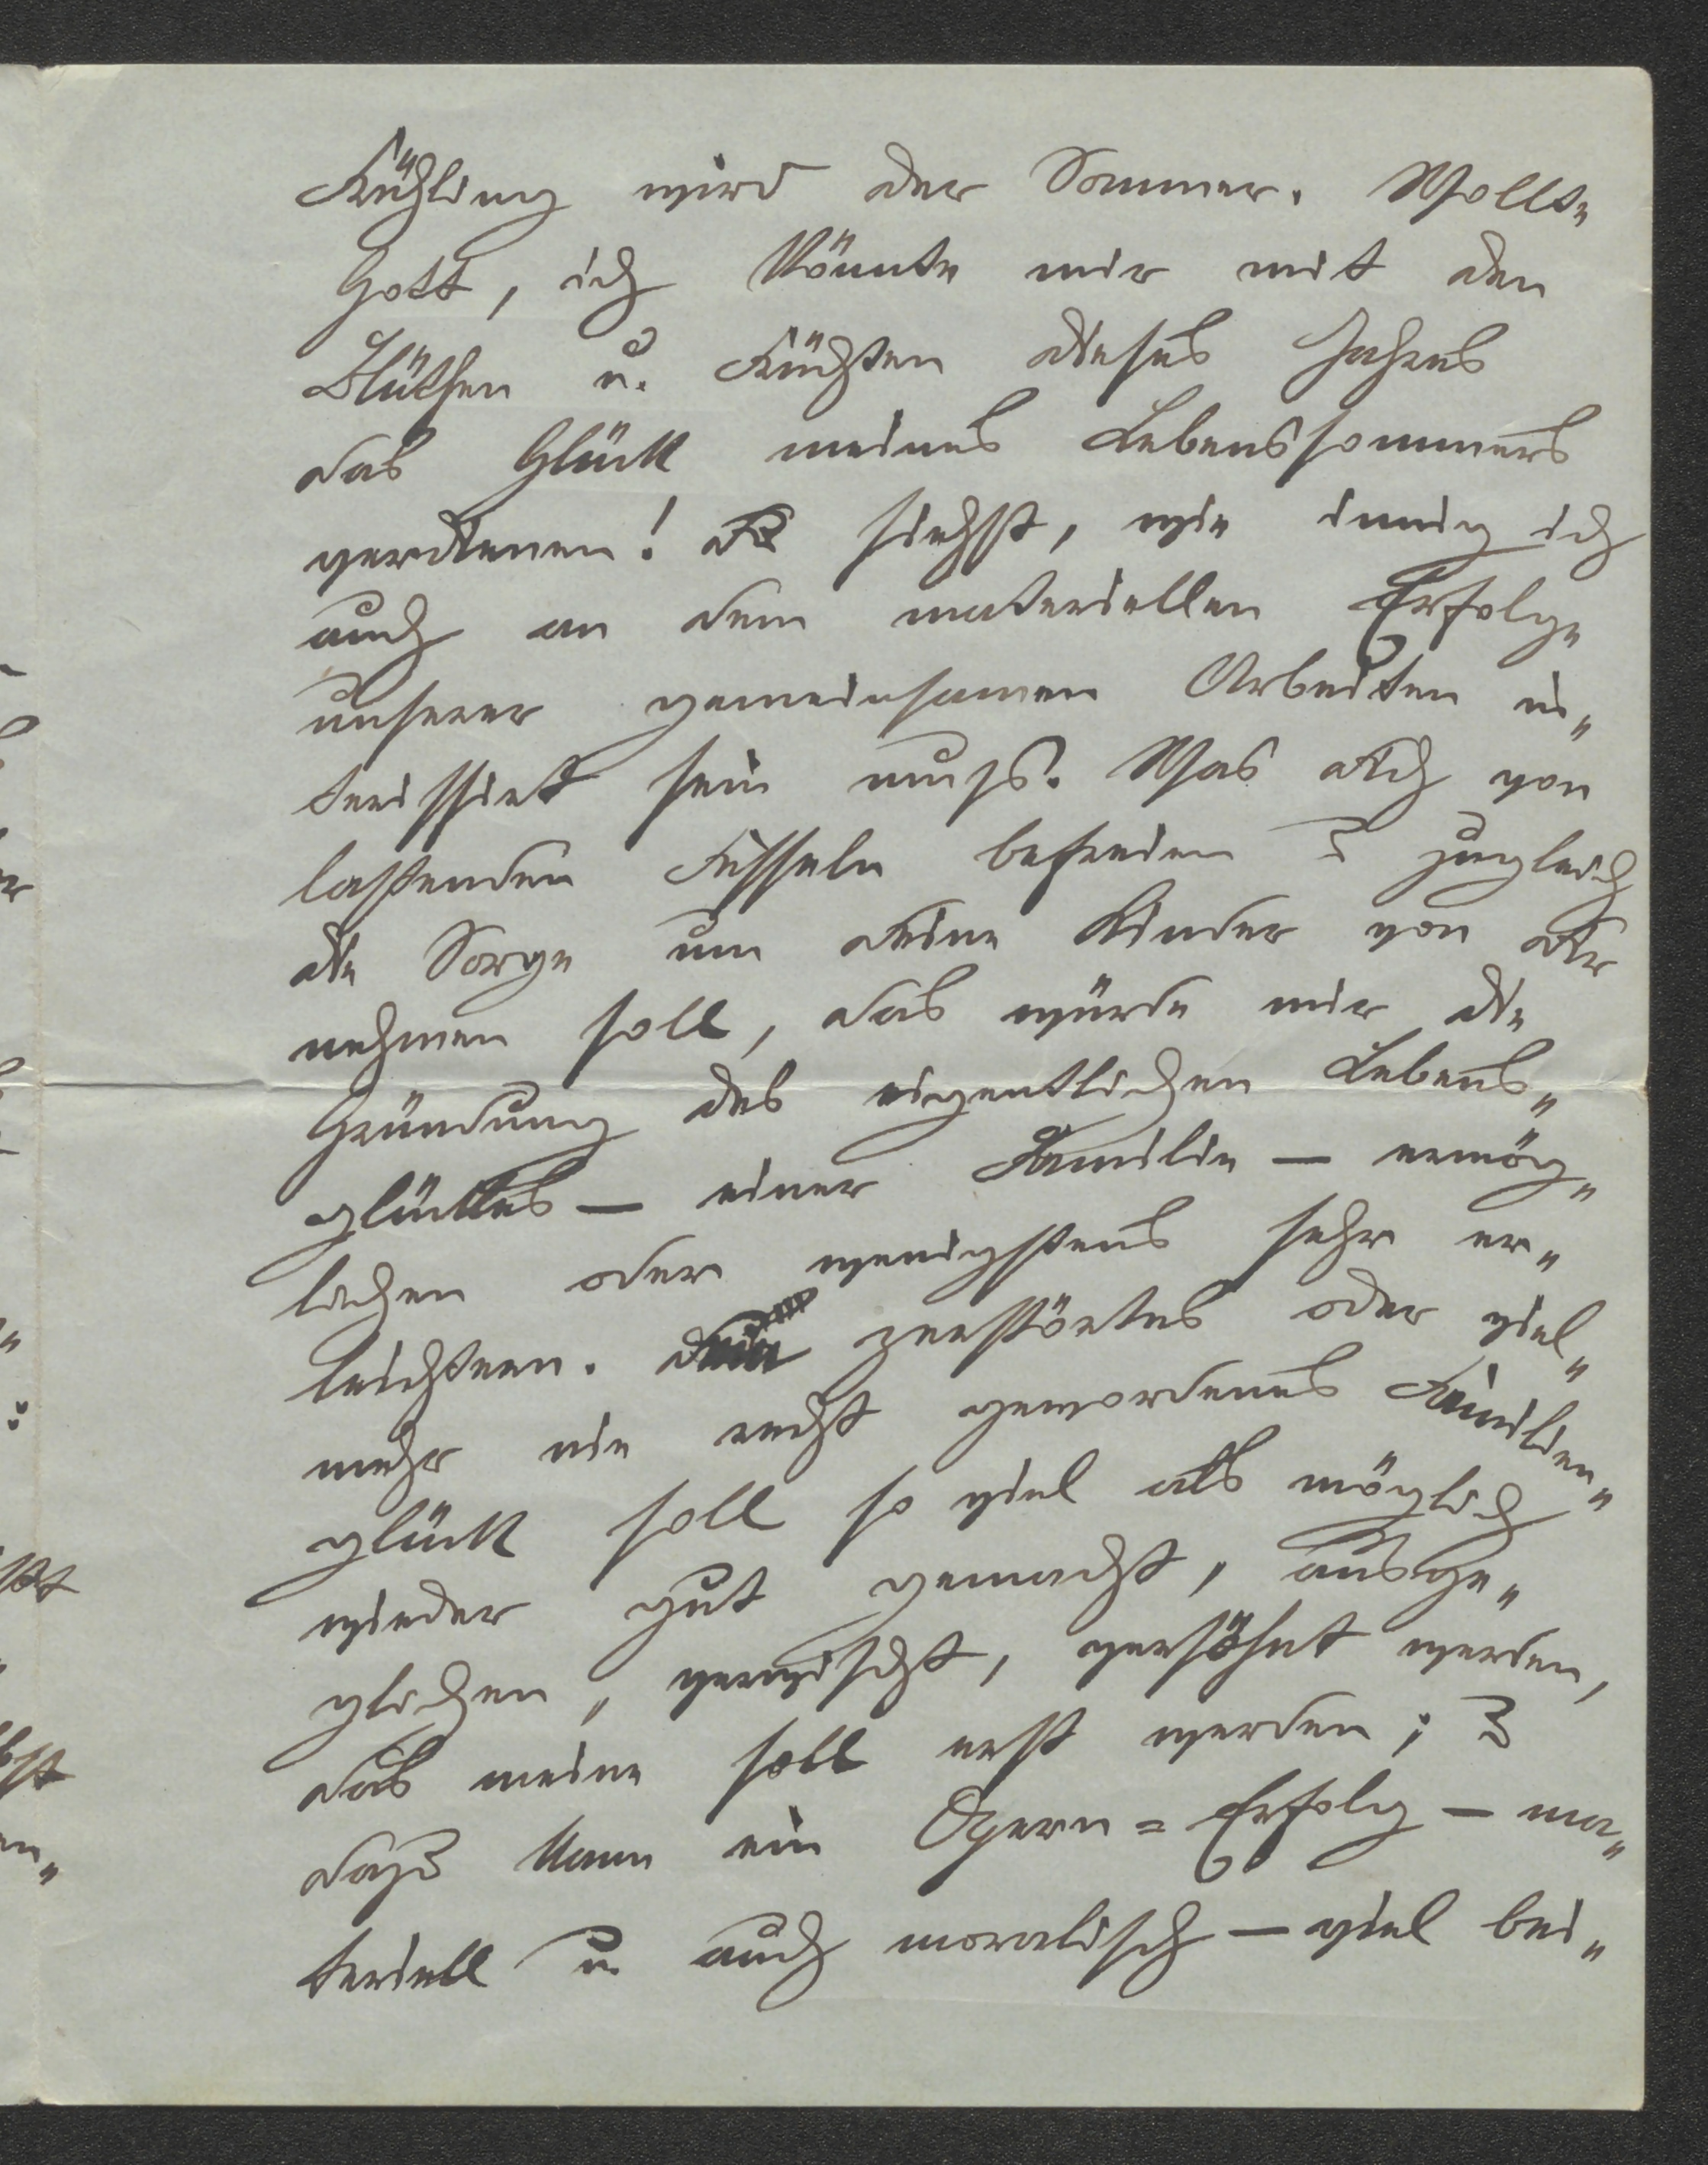 Frühling wird der Sommer. Wollte
Gott, ich könnte mir mit den
Blüthen u. Früchten dieses Jahres
das Glück meines Lebenssommers
verdienen! Du siehst, wie innig ich
auch an dem materiellen Erfolge
unserer gemeinsamen Arbeiten in„
teressiert sein muß. Was dich von
lastenden Fesseln befreien & zugleich
die Sorge um deine Kinder von dir
nehmen soll, das würde mir die
Gründung des eigentlichen Lebens„
glückes — einer Familie — ermög„
lichen oder wenigstens sehr er„
leichtern. Dein zerstörtes oder viel„
mehr nie recht gewordenes Familien„
glück soll so viel als möglich
wieder gut gemacht, ausge„
glichen, verwischt, versöhnt werden,
das meine soll erst werden; &
dazu kann ein Opern=Erfolg — ma„
teriell u. auch moralisch — viel bei„